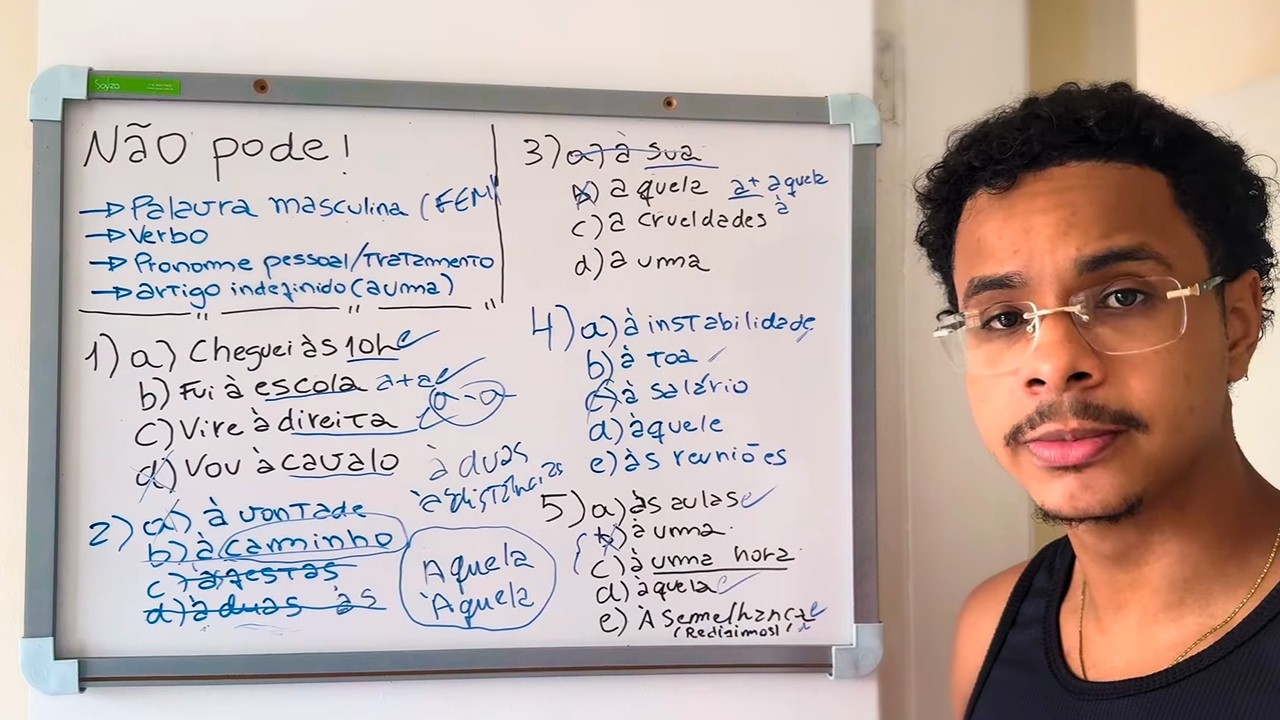 Soyza
Não pode!
→ Palavra masculina (FEM)
→ Verbo
→ Pronome pessoal/Tratamento
→ artigo indefinido (a uma)
1) a) Cheguei às 10h
b) Fui à escola a+a
c) Vire à direita a-a
d) Vou à cavalo
à duas
à distâncias
2) a) à vontade
b) à caminho
c) àgestas
d) à duas às
Aquela
Àquela
3) a) à sua
b) a quela a+aquela
à
c) a crueldades
d) a uma
4) a) à instabilidade
b) à toa
c) à salário
d) àquele
e) às reuniões
5) a) às aulas
b) à uma
c) à uma hora
d) àquela
e) À semelhança
(Redigimos)